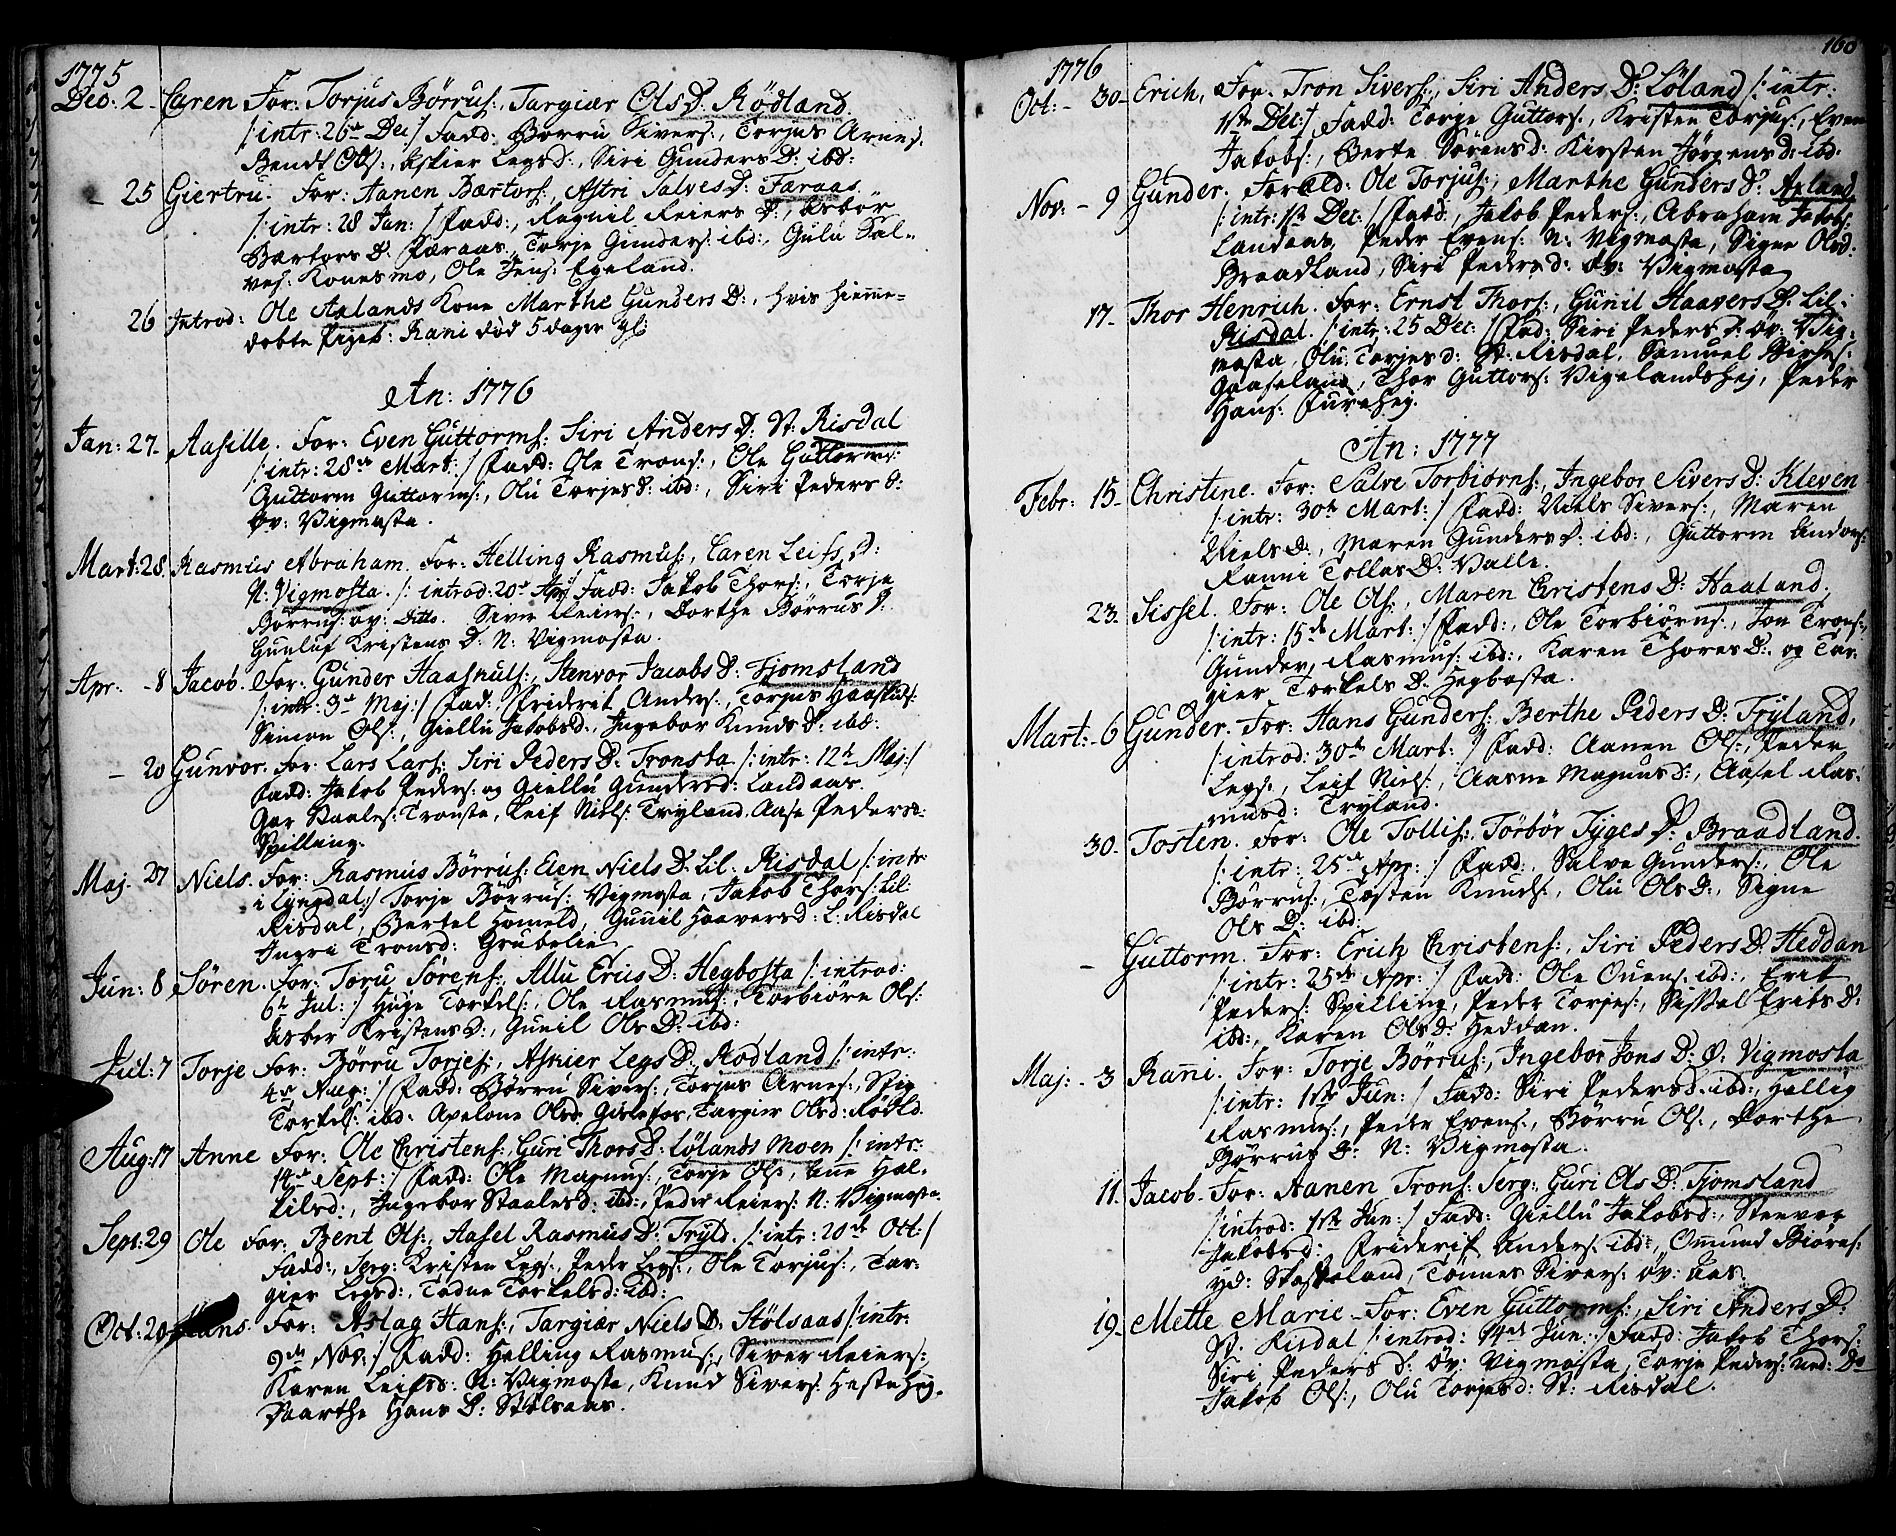 1775
Dec: 2 - Caren For: Torjus Börrus:, Targiær Ols D: Rödland
/: intr: 26de Dec :/ Fadd: Börru Sivers:, Torjus Arnes:
Bendt Ols:, Askier Legsd:, Siri Gunders D: ibd:
- 25 Giertru. For: Aanen Bærtors:, Astri Salves D: Færaas.
/: intr: 28 Jan: :/ Fadd:, Ragnil Reiers D:, Asbor
Bærtors D: Færaas, Torje Gunders: ibd:, Gulu Sal-
ves: Konesmo, Ole Jens: Egeland.
26 Introd: Ole Axlands Kone Marthe Gunders D:, hvis hiemme-
döbte Pigeb: Rani död 5 dager gl:
An: 1776
Jan: 27- Aasille. For: Even Guttorms: Siri Anders D: St: Risdal
/: intr: 28de Mart: :/ Fadd: Ole Trons:, Ole Guttorms:
Guttorm Guttorms:, Olu Torjes D: ibd:, Siri Peders D:
Öv: Vigmosta.
Mart: 28. Rasmus Abraham. For: Helling Rasmus:, Caren Leifs D:
N: Vigmosta. /: introd: 20de Apr :/ Fadd: Jakob Thors:, Torje
Börrus: öv: Ditto. Siver Reiers:, Dorthe Börrus D:
Gunluf Kristens D: N: Vigmosta.
Apr: - 8 Jacob. For: Gunder Haaskuls:, Stenvor Jacobs D: Tjomsland
/: intr: 3de Maj :/ Fad: Friderik Anders:, Torjus Haaskuls:
Simon Ols:, Giellu Jakobsd:, Ingebor Knuds D: ibd:
- 20 Gunvor. For: Lars Lars: Siri Peders D: Tronsta /: intr: 12te Maj :/
Fadd: Jakob Peders: og Giellu Gundersd: Landaas.
Gar Staales: Tronsta, Leif Niels: Tryland, Aase Peders D:
Spilling.
Maj. 27 Niels. For: Rasmus Börrus: Elen Niels D: Lil: Risdal /: intr:
i Lyngdal :/ Torje Börrus: Vigmosta, Jakob Thors: Lil:
Risdal, Bertel Homeld, Gunnil Haaversd: L: Risdal
Ingri Tronsd: Grubelie
Jun: 8 Sören. For: Toru Sörens:, Allu Erics D: Hegbosta /: introd:
6te Jul: :/ Huge Torkels:, Ole Rasmus:, Torbiörn Ols:
Asber Kristens D:, Gunil Ols D: ibd:
Jul: 7 Torje For: Börru Torjes:, Askier Legs D: Rodland /: intr:
4de Aug: :/ Fadd: Börru Sivers:, Torjus Arnes:, Stig
Torkels: ibd: Apelone Olsd: Gislefos, Targier Olsd: Rödld.
Aug: 17 Anne For: Ole Christens:, Guri Thors D: Lölands Moen /: intr:
14de Sept: :/ Fadd: Ole Magnus:, Torje Ols:, Anne Hal-
kilsd:, Ingebor Staalesd: ibd:, Peder Reiers: N: Vigmosta.
Sept: 29 Ole For: Bent Ols:, Aasel Rasmus D: Tryld. /: intr: 20de Oct: :/
Fadd:, Serg: Kristen Legs:, Peder Legs:, Ole Torjus:, Tar-
gier Legsd:, Todne Torkelsd: ibd:
Oct: 20 Hans. For: Aslag Hans:, Targiær Niels D: Stölsaas /: intr:
9de Nov: :/ Fadd: Helling Rasmus:, Siver Reiers:,
Karen Leifsd: N: Vigmosta, Knud Sivers: Hestehej.
Marthe Hans D: Stölsaas.
160
1776
Oct: - 30- Erich, For: Tron Sivers:, Siri Anders D: Löland /: intr:
1ste Dec :/ Fadd: Torje Guttors:, Kristen Torjus:, Even
Jakobs:, Berte Sörensd: Kirsten Jörgensd: ibd:
Nov: - 9 Gunder. Foræld: Ole Torjus:, Marthe Gunders D: Axland
/: intr: 1ste Dec: :/ Fadd:, Jakob Peders:, Abraham Jakobs:
Landaas, Peder Evens: N: Vigmosta, Signe Olsd:
Braadland, Siri Pedersd: Öv: Vigmosta
17- Thor Henrich. For: Ernst Thors:, Gunnil Haavers D: Lil:
Risdal. /: intr: 25 Dec: :/ Fad: Siri Peders D: öv: Vig-
mosta, Olu Torjesd: St: Risdal. Samuel Birkes:
Gaaseland, Thor Guttors: Vigelandshej, Peder
Hans: Furehej.
An: 1777
Febr: 15- Christine. For: Salve Torbiorns:, Ingebor Sivers D: Kleven
/: intr: 30te Mart: :/ Fadd: Niels Sivers:, Maren
Niels D:, Maren Gunders D: ibd:, Guttorm Anders:
Ranni Tollas D: Valle.
23. Sissel. For: Ole Ols:, Maren Christens D: Haaland.
/: intr: 15de Mart: :/ Fadd:, Ole Torbiörns:, Jon Trons:,
Gunder Rasmus: ibd:, Karen Thores D: og Tar-
gier Torkels D: Hegbosta.
Mart: - 6 Gunder. For: Hans Gunders: Berthe Peders D: Tryland,
/: introd: 30te Mart: :/ Fadd: Aanen Ols:, Peder
Legs:, Leif Niels:, Aasne Magnusd:, Aasel Ras-
musd: Tryland.
30. Tosten. For: Ole Tollis:, Törbör Tyges D: Braadland.
/: intr: 25de Apr: :/ Fadd:, Salve Gunders:, Ole
Börrus:, Tosten Knuds:, Olu Ols D:, Signe
Ols D: ibd:
- Guttorm. For: Erich Christens:, Siri Peders D: Heddan
/: intr: 25de Apr: :/ Fadd: Ole Ouens: ibd:, Erik
Peders: Spilling, Peder Torjes:, Sissel Eriks D:
ibd:, Karen Ols D: Heddan.
Maj: - 3 Ranni. For: Torje Börrus:, Ingebor Jons D: Ö: Vigmosta
/: intr: 1ste Jun: :/ Fadd: Siri Pedersd: ibd:, Hellig
Rasmus:, Peder Evens:, Börru Ols:, Dorthe
Börrus D: N: Vigmosta.
11. Jacob. For: Aanen Trons: Serg:, Guri Ols D: Tjomsland
/: introd: 1ste Jun: :/ Fadd: Giellu Jakobsd:, Stenvor
Jakobsd: Friderik Anders: ibd:, Ommund Biörns:
yd: Skofteland, Tönnes Sivers: öv: Aas.
19- Mette Marie - For: Even Guttorms:, Siri Anders D:
St: Risdal /: introd: 14de Jun: :/ Fadd: Jakob Thors:
Siri Peders D: Öv: Vigmosta, Torje Peders: ned: Do
Jakob Ols:, Olu Torjesd: St: Risdal.